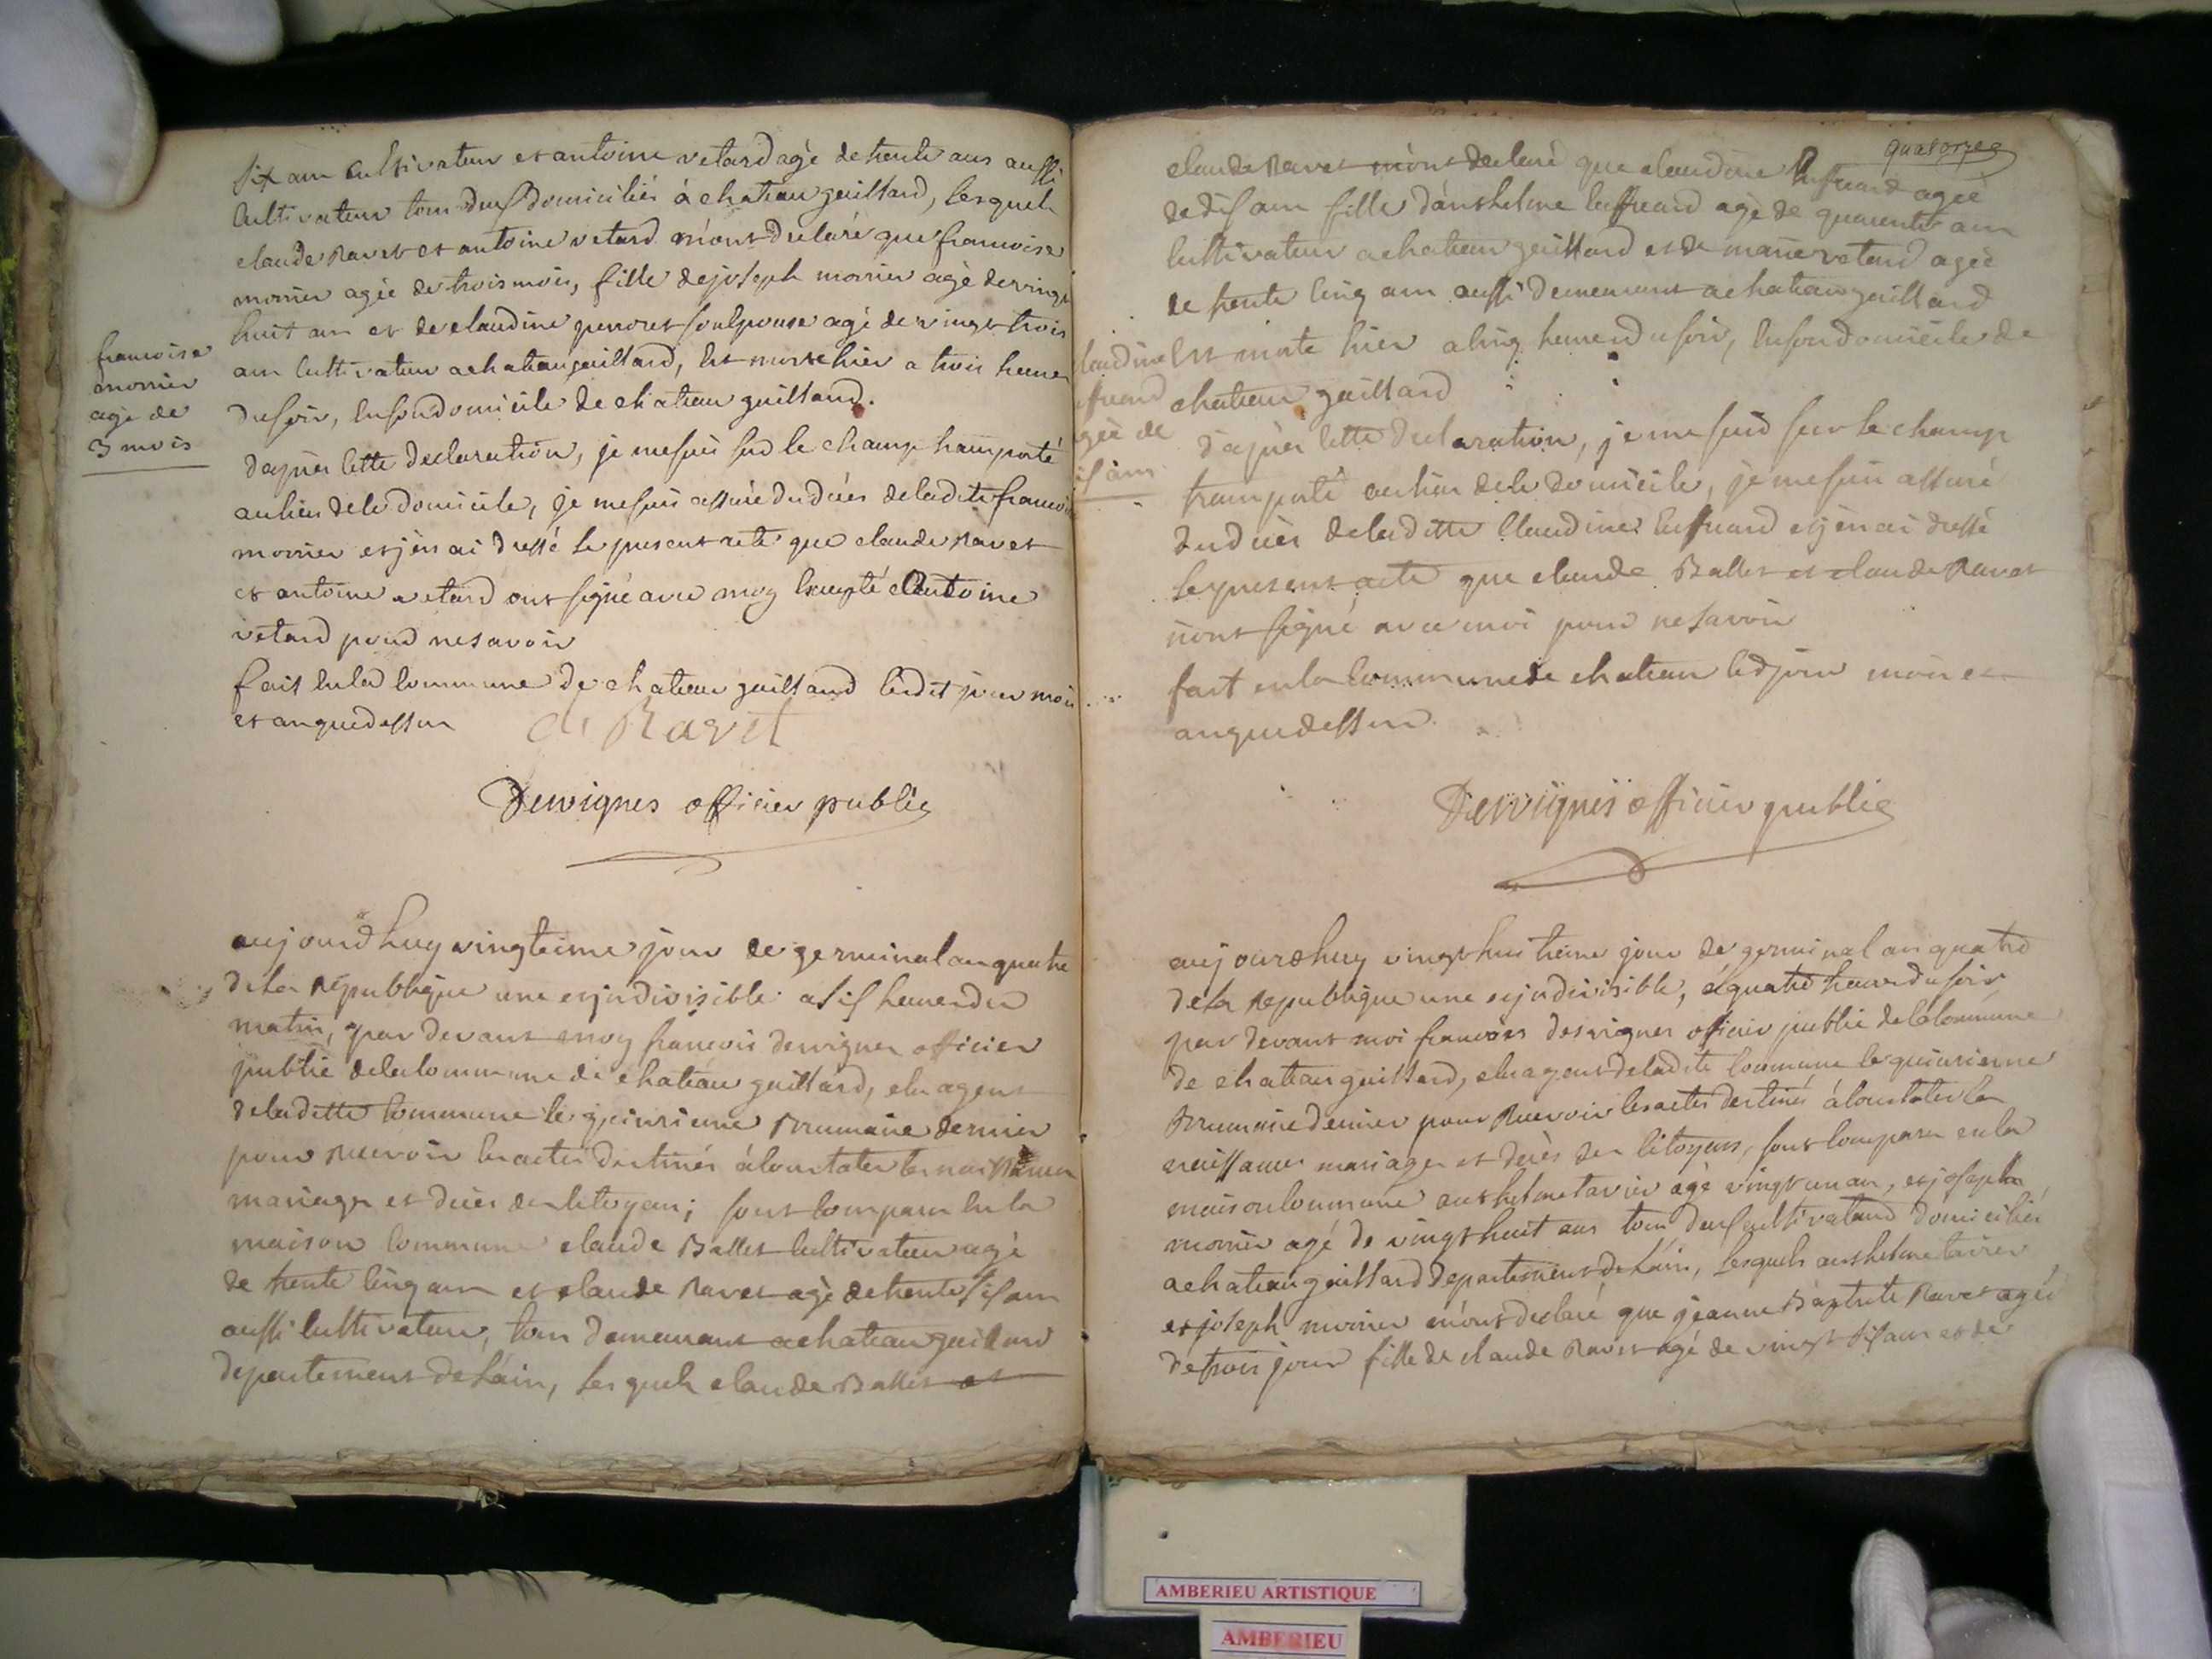 six ans cultivateur et antoine vetard agè de trente ans aussi
cultivateur tous deux domiciliés à chateau gaillard, lesquels
claude Ravet et antoine vetard m'ont declaré que francoise
monier agée de trois mois, fille de joseph monier agé de vingt
huit ans et de claudine perroset son epouse agé de vingt trois
ans cultivateur a chateau gaillard, est morte hier a trois heures
du soir, en son domicile de chateau gaillard.
francoise
monier
age de
3 mois
d'apres cette declaration, je me suis sur le champ transporté
au lieu de le domicile, je me suis assuré du décès de la dite francoi
monier et j'en ai dressé le present acte que claude Ravet
et antoine vetard ont signé avec moy excepté Antoine
vetard pour ne savoir
fait en la commune de chateau gaillard ledit jour mois
et an que dessus
cl Ravet
Dervignes officier public
aujourdhuy vingtieme jour de germinal an quatre
de la Républiqe une et indivisible a six heures du
matin, par devant moy francois dervignes officier
public de la commune de chateau gaillard, elu agent
de la ditte commune le quinsieme Brumaire dernier
pour recevoir les actes destinés à constater les naissances
mariages et décès des citoyens; sont comparu en la
maison commune claude Ballet cultivateur agé
de trente cinq ans et claude Ravet agé de trente six ans
aussi cultivateur, tous demeurant a chateau gaillard
departement de l'ain, lesquels claude Ballet et
quatorze
claude Ravet m'ont declaré que claudine Luffrand agée
de dix ans fille d'anshelme Luffrand agé de quarente ans
cultivateur a chateau gaillard et de marie vetard agée
de trente cinq ans aussi demeurant a chateau gaillard
est morte hier a cinq heures du soir, en son domicile de
chateau gaillard
laudine
ffrand
gée de
ix ans
d'après cette declaration, je me suis sur le champ
transporté au lieu de le domicile, je me suis assuré
du décès de la ditte Claudine Luffrand et j'en ai dressé
le present acte que claude Ballet et claude Ravet
n'ont signé avec moi pour ne savoir
fait en la commune de chateau led jour mois et
an que dessus.
Dervignes officier public
aujourdhuy vingt huitieme jour de germinal an quatre
de la Republique une et indivisible, à quatre heures du soir
par devant moi francois dervignes officier public de la commune
de chateau gaillard, elu agent de la dite commune le quinsieme
Brumaire dernier pour Recevoir les actes destinés à constater la
naissances mariages et décès des citoyens, sont comparu en la
maison commune anshelme tavier agé vingt un an, et joseph
monier agé de vingt huit ans tous deux cultivateurs domiciliés
a chateau gaillard departement de l'ain, lesquels anshelme tavier
et joseph monier m'ont declaré que jeanne Baptiste Ravet agée
de trois jours fille de claude Ravet agé de vingt six ans et de
AMBERIEU ARTISTIQUE
AMBERIEU